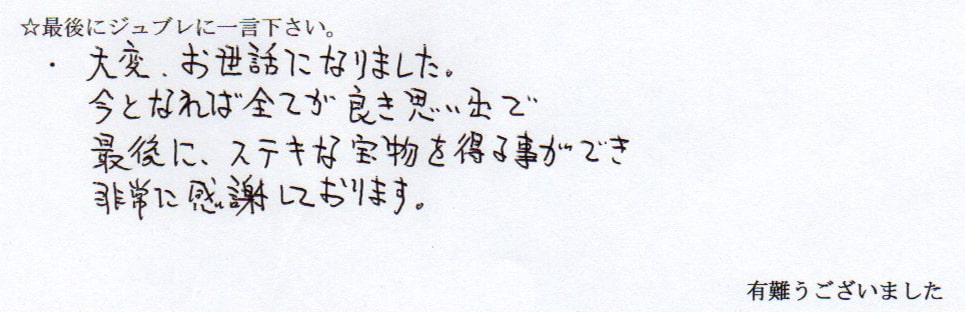 ☆最後にジュブレに一言下さい。
・大変、お世話になりました。
今となれば全てが良き思い出で
最後に、ステキな宝物を得る事ができ
非常に感謝しております。
有難うございました